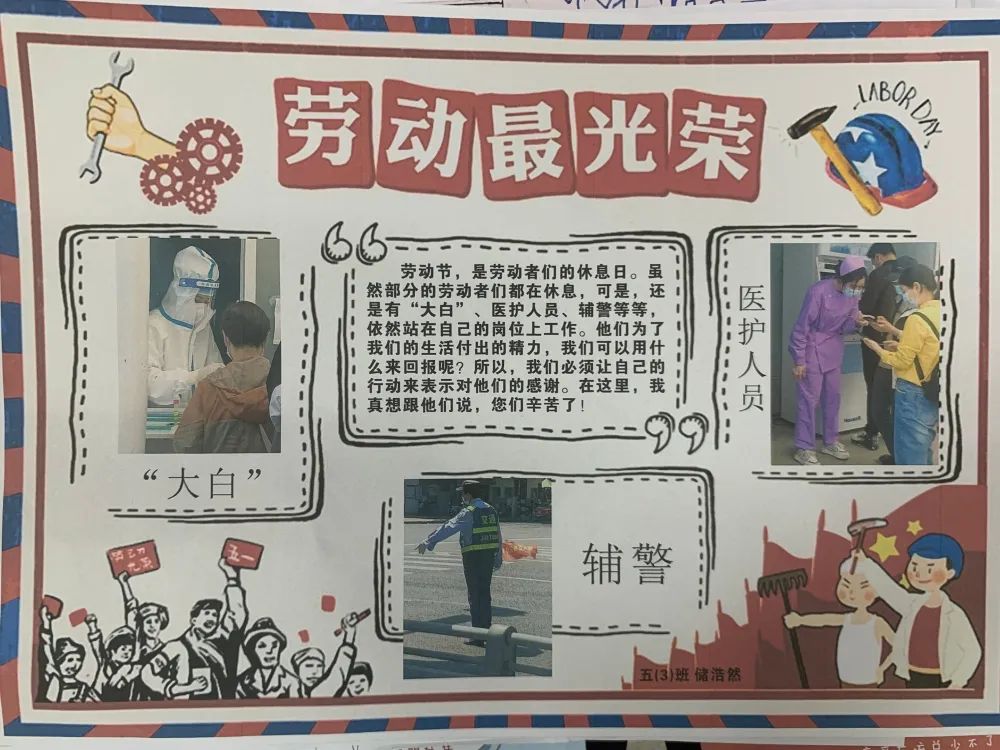 劳动最光荣
LABOR DAY
劳动节，是劳动者们的休息日。虽
然部分的劳动者们都在休息，可是，还
是有“大白”、医护人员、辅警等等，
依然站在自己的岗位上工作。他们为了
我们的生活付出的精力，我们可以用什
么来回报呢？所以，我们必须让自己的
行动来表示对他们的感谢。在这里，我
真想跟他们说，您们辛苦了！
医护人员
“大白”
交通
辅警
劳动
光荣
五一
五(3)班 储浩然